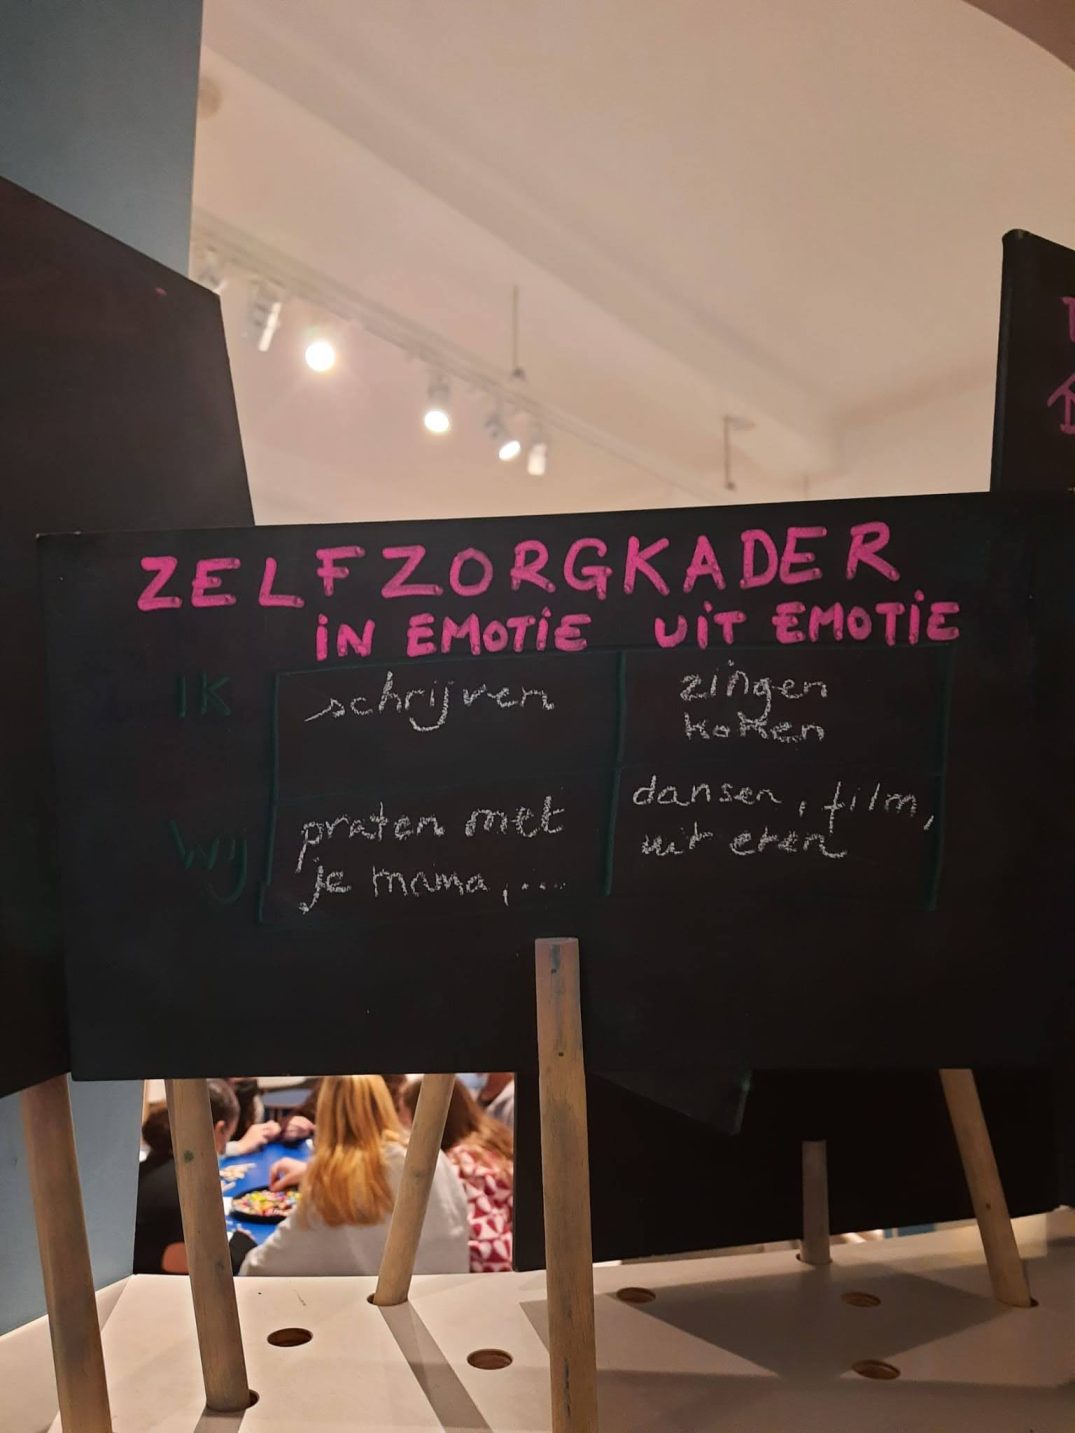 ZELFZORGKADER
iN EMOTiE UiT EMOTiE
IK schrijven zingen
koken
praten met dansen, film,
Wij je mama, .... uit eten